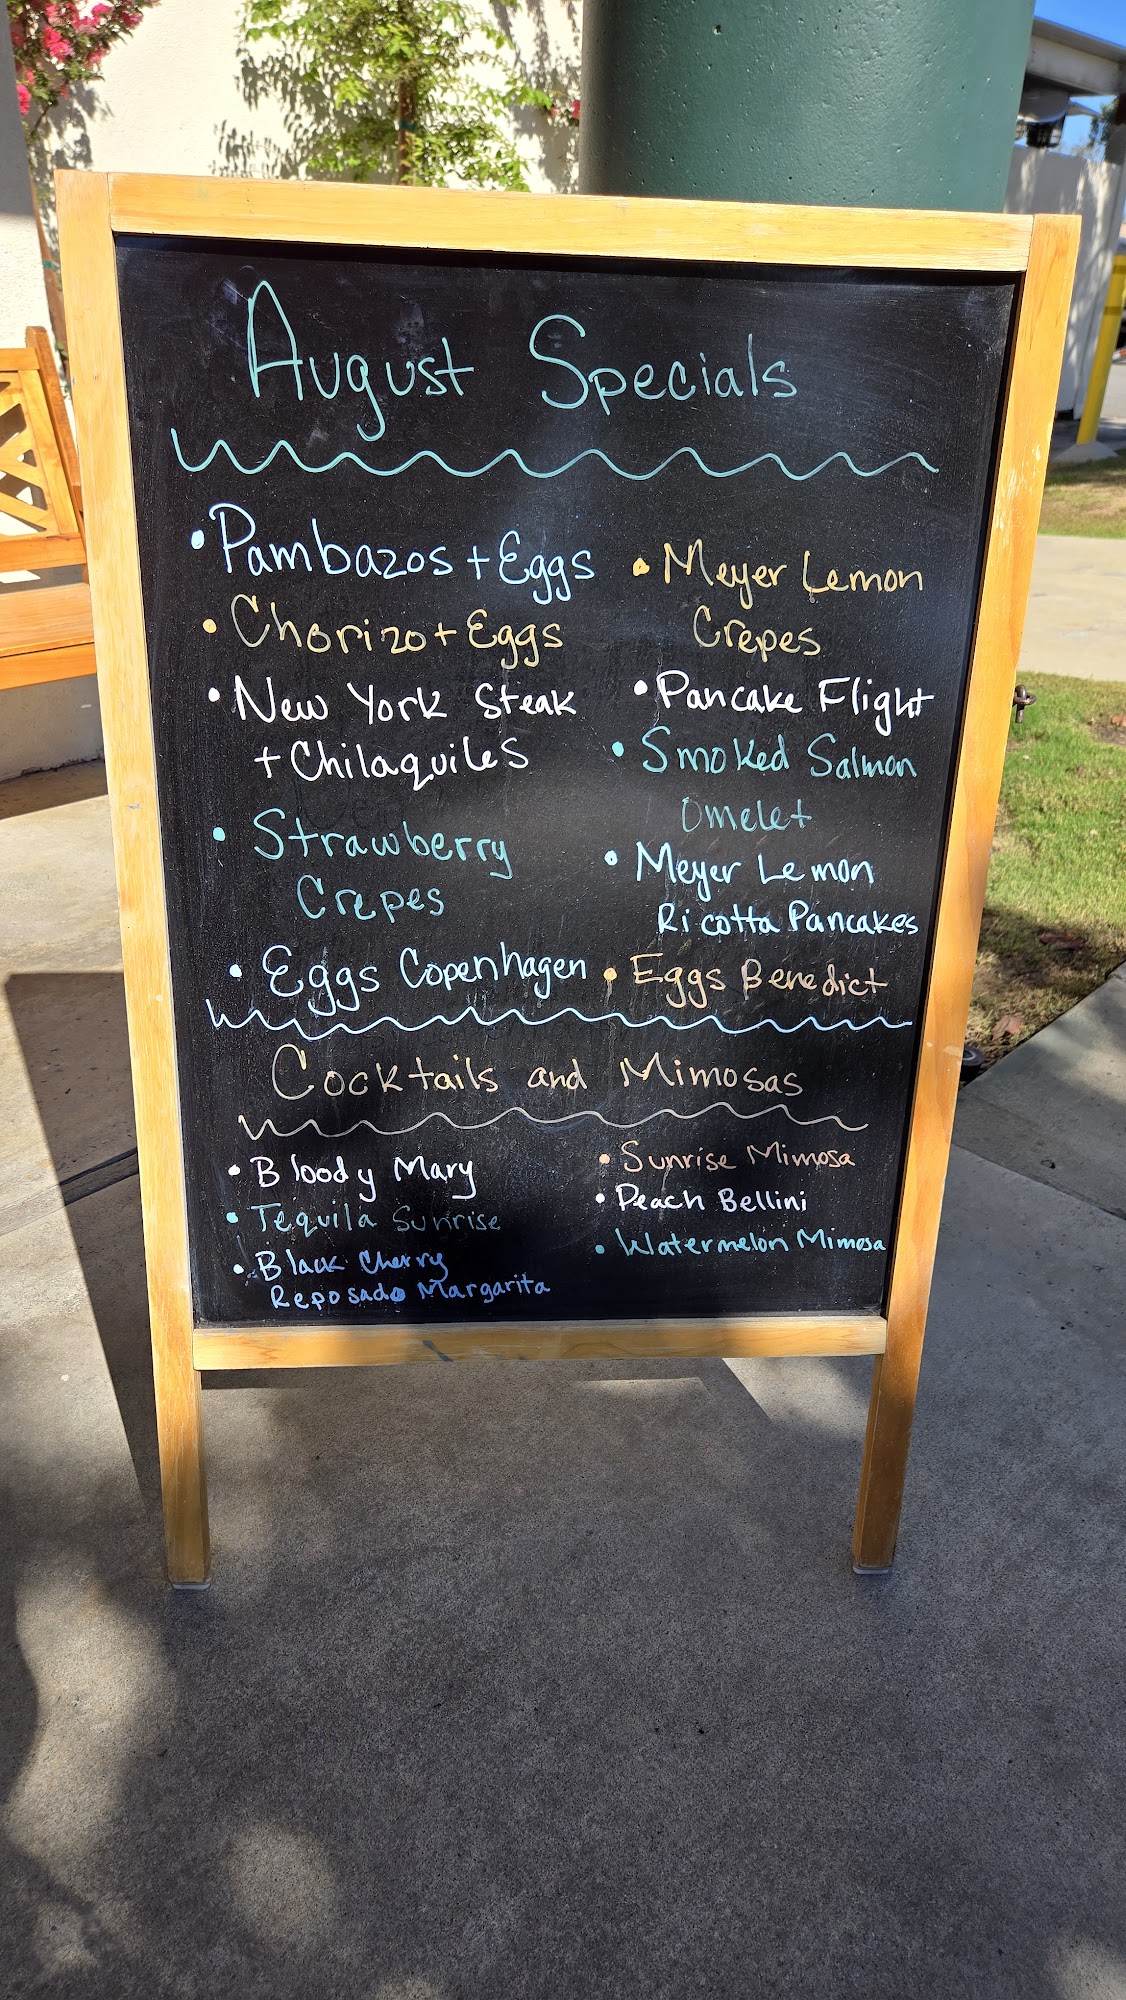 August Specials
• Pambazos + Eggs
• Chorizo + Eggs
• New York Steak
+ Chilaquiles
• Strawberry
Crepes
• Eggs Copenhagen
• Meyer Lemon
Crepes
• Pancake Flight
• Smoked Salmon
Omelet
• Meyer Lemon
Ricotta Pancakes
• Eggs Benedict
Cocktails and Mimosas
• Bloody Mary
• Tequila Sunrise
• Black Cherry
Reposado Margarita
• Sunrise Mimosa
• Peach Bellini
• Watermelon Mimosa